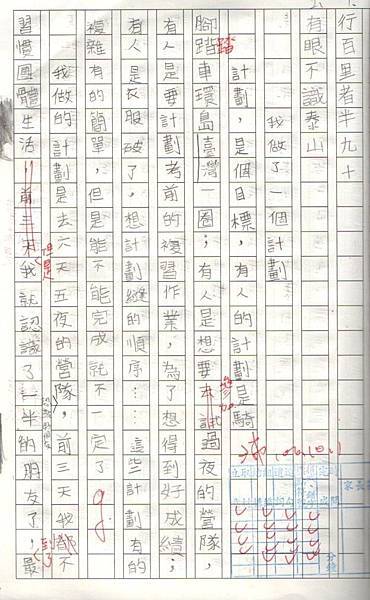 行百里者半九十
有眼不識泰山
我做了一個計劃
計劃,是個目標,有人的計劃是騎
腳踏車環島臺灣一圈;有人是想要參加過夜的營隊,
有人是要計劃考前的複習作業,為了想得到好成績;
有人是衣服破了,想計劃縫的順序……這些計劃有的
複雜有的簡單,但是能不能完成就不一定了。
我做的計劃是去六天五夜的營隊,前三天我都不
習慣團體生活,但是我就認識了一半的朋友了,到了最